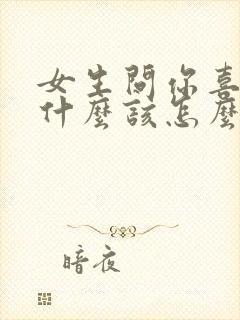 女生問你喜
什麼該怎麼
暗夜